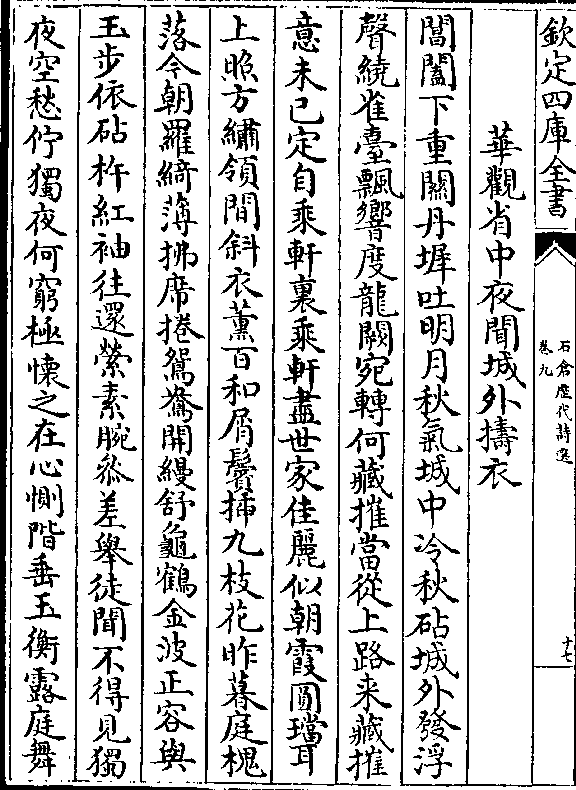 欽定四庫全書
石倉歷代詩選
卷九
十七
華觀省中夜聞城外擣衣
閶闔下重關丹墀吐明月秋氣城中冷秋砧城外發浮
聲繞雀臺飄響度龍闕宛轉何藏摧當從上路来藏摧
意未已定自乘軒裏乘軒盡世家佳麗似朝霞圓璫耳
上照方繡領間斜衣薫百和屑鬢揷九枝花昨暮庭槐
落今朝羅綺薄拂席捲鴛鴦開縵舒龜鶴金波正容與
玉步依砧杵紅袖往還縈素腕叅差舉徒聞不得見獨
夜空愁佇獨夜何窮極懷之在心惻階垂玉衡露庭舞